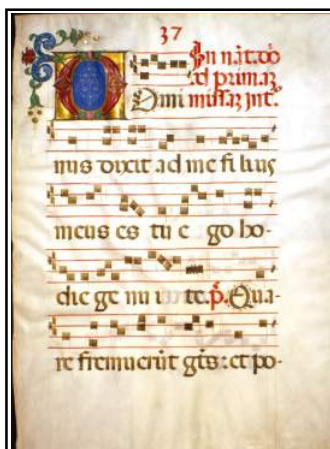 37
In nat. dō
Ad primaz
D omi missaz int.
nus dixit ad me filius
meus es tu e go ho-
die ge nu i te. p̄. Qua-
re fremuerūt gēs: et po-